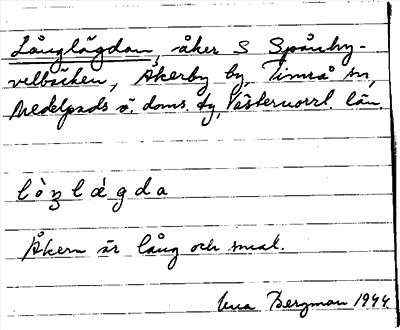 Långlägdan, åker S Spånhy-
velbäcken, Åkerby by, Timrå sn,
Medelpads ö. doms. tg, Västernorrl. län.
lòŋlægda
Åkern är lång och smal.
Bergman 1944